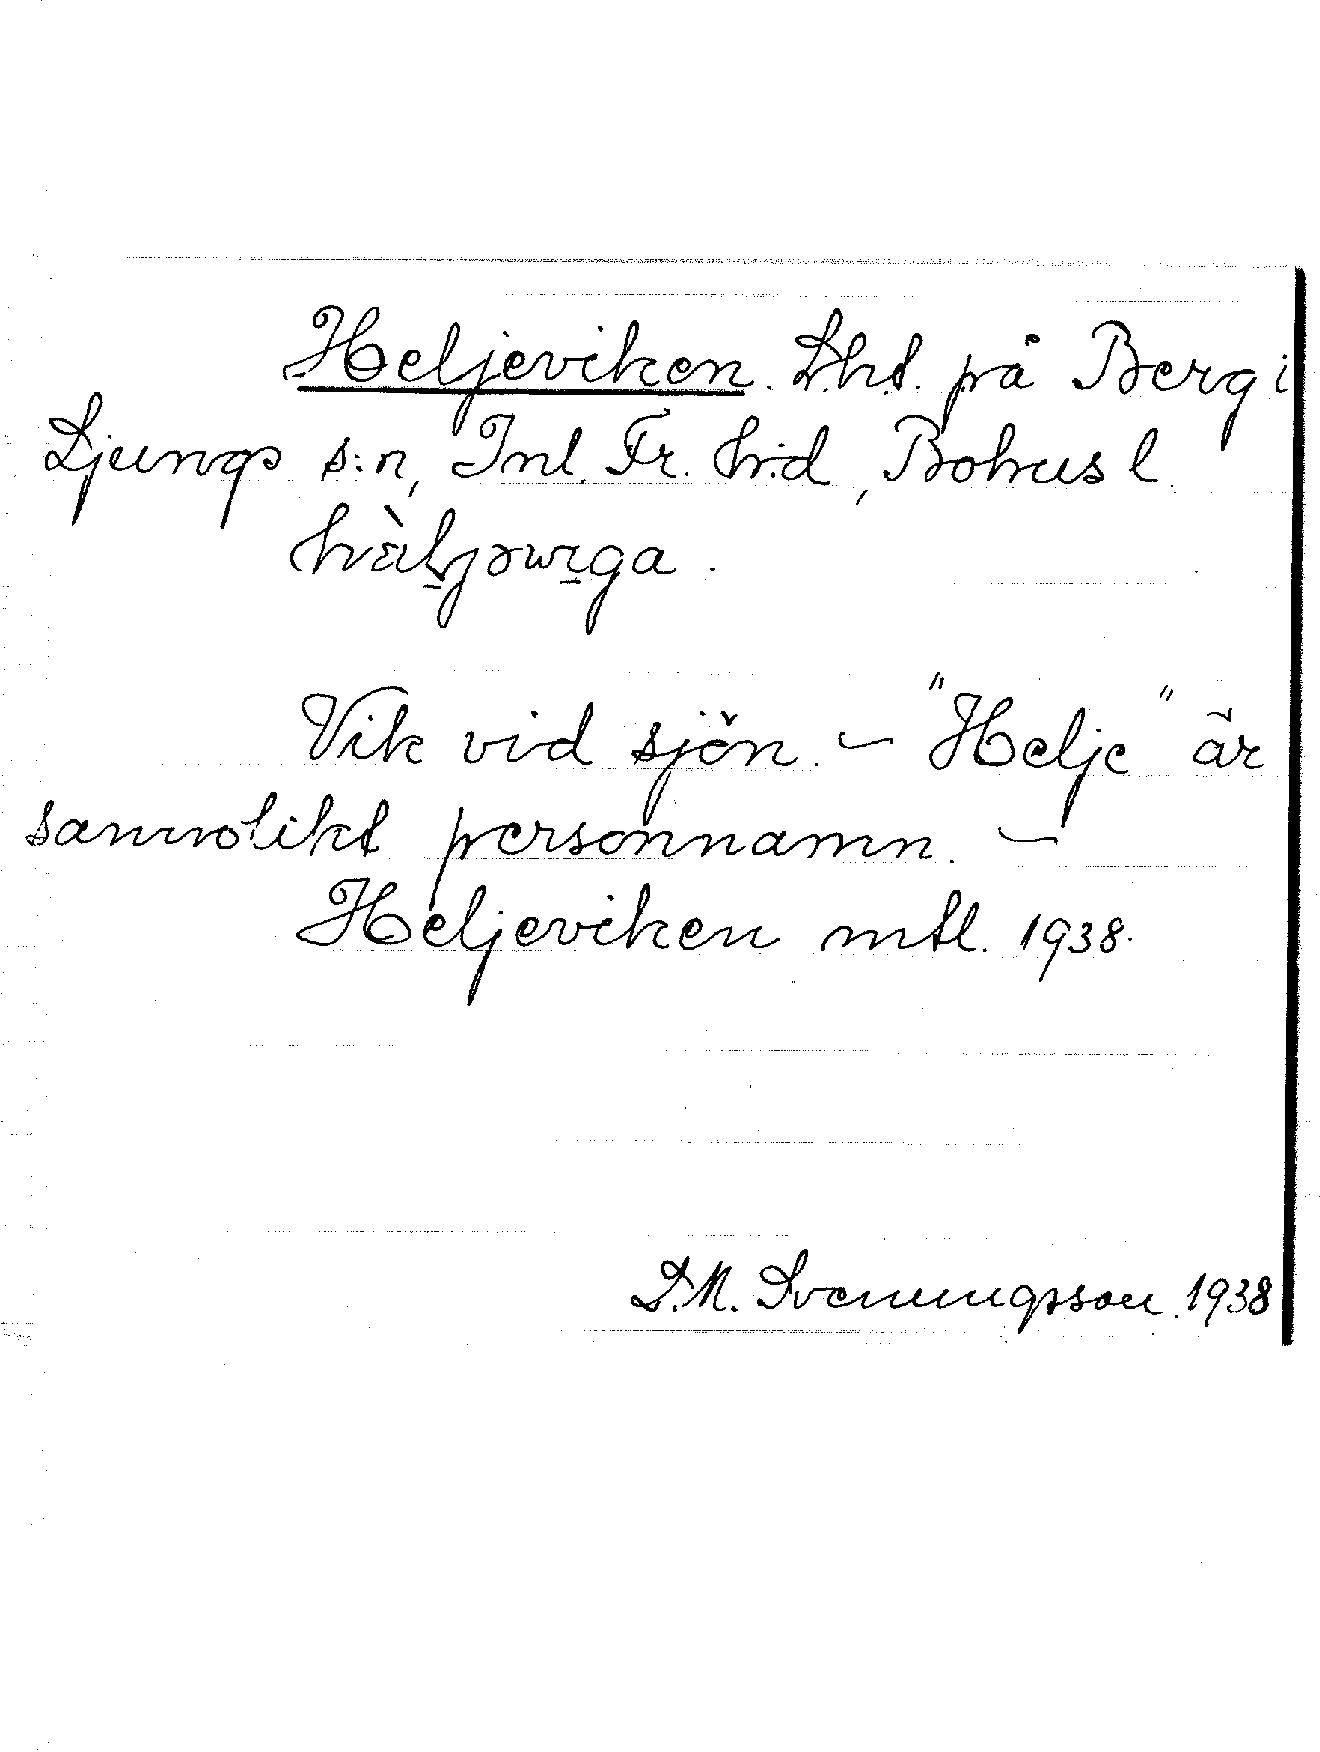 Heljeviken. Lht. på Berg i
Ljungs s:n, Inl. Fr. h:d, Bohusl.
hæ̀ljəwiga.
Vik vid sjön. – "Helje" är
sannolikt personnamn. –
Heljeviken mtl. 1938.
D.M. Svenningsson. 1938